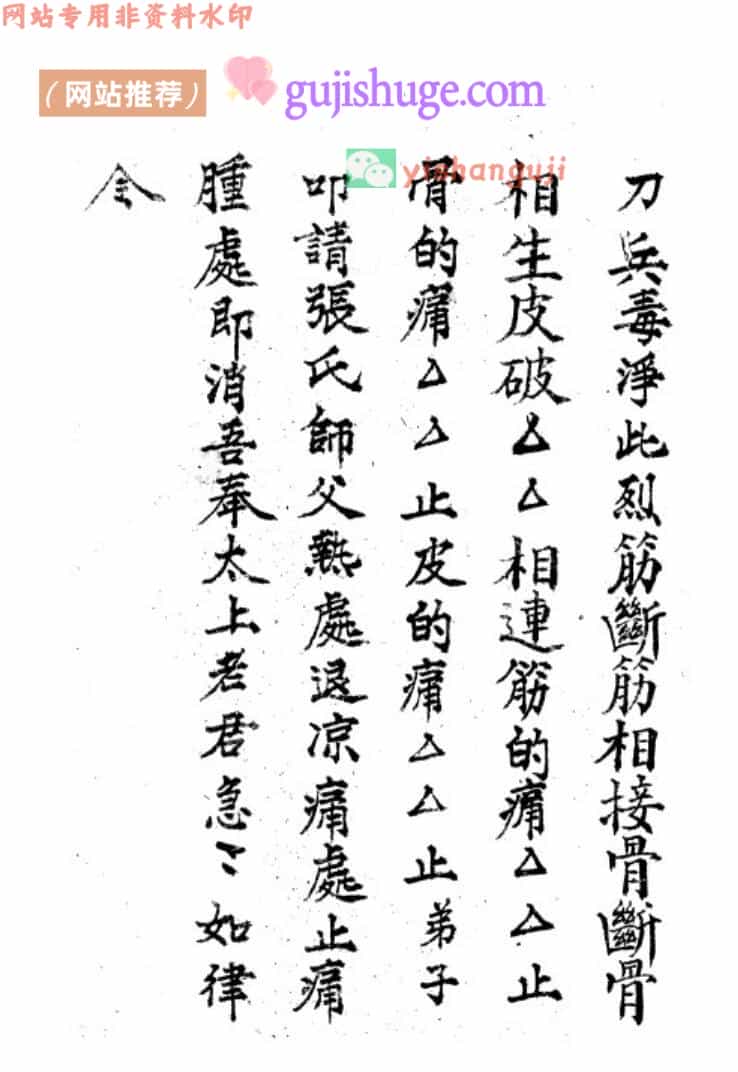 网站专用非资料水印
（网站推荐） gujishuge.com
yinhanguji
刀兵毒淨此烈筋斷筋相接骨斷骨
相生皮破△△相連筋的痛△△止
骨的痛△△止皮的痛△△止弟子
叩請張氏師父熱處退凉痛處止痛
腫處即消吾奉太上老君急〻如律
令